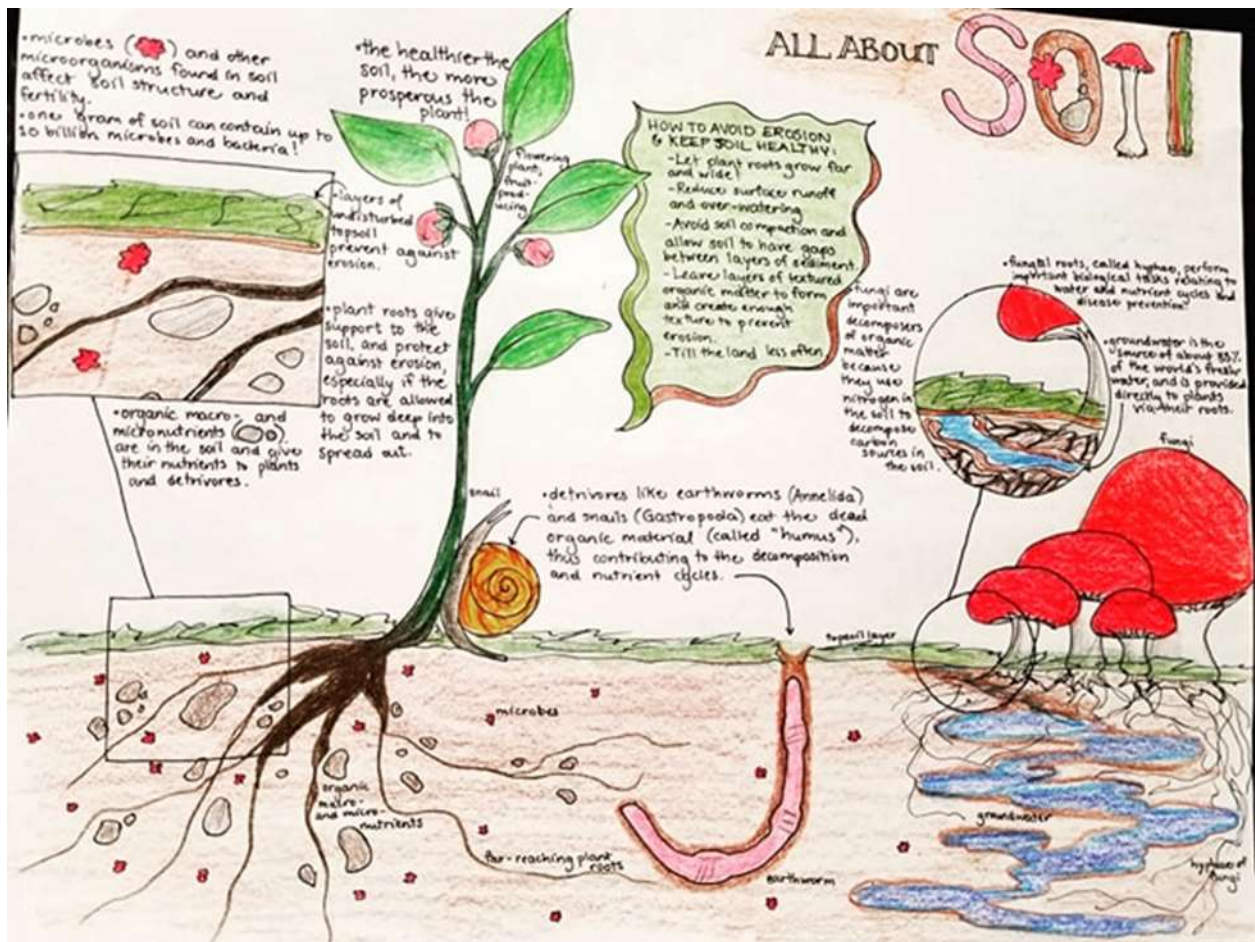 ALL ABOUT SOIL
•microbes ( ) and other
microorganisms found in soil
affect soil structure and
fertility.
•one gram of soil can contain up to
10 billion microbes and bacteria!
•the healthier the
soil, the more
prosperous the
plant!
flowering
plant,
fruit-
prod-
ucing
-layers of
undisturbed
topsoil
prevent against
erosion.
•plant roots give
support to the
soil, and protect
against erosion,
especially if the
roots are allowed
to grow deep into
the soil and to
spread out.
•organic macro- and
micronutrients ( )
are in the soil and give
their nutrients to plants
and detrivores.
HOW TO AVOID EROSION
& KEEP SOIL HEALTHY:
-Let plant roots grow far
and wide!
-Reduce surface runoff
and over-watering
-Avoid soil compaction and
allow soil to have gaps
between layers of sediment.
-Leave layers of textured
organic matter to form
and create enough
texture to prevent
erosion.
-Till the land less often
•fungi are
important
decomposers
of organic
matter
because
they use
nitrogen in
the soil to
decompose
carbon
sources in
the soil.
•fungal roots, called hyphae, perform
important biological tasks relating to
water and nutrient cycles and
disease prevention!
•groundwater is the
source of about
of the world's fresh
water, and is provided
directly to plants
via their roots.
fungi
snail
•detrivores like earthworms (Annelida)
and snails (Gastropoda) eat the dead
organic material (called "humus"),
thus contributing to the decomposition
and nutrient cycles.
topsoil layer
microbes
organic
macro-
and micro-
nutrients
far-reaching plant
roots
earthworm
groundwater
hyphae of
fungi